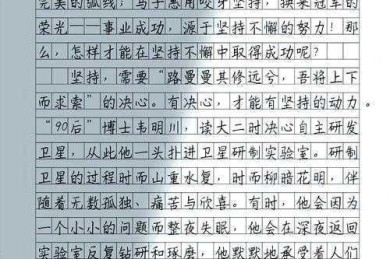 完美的弧线；马宁愿用咬牙坚持，换来冠军的
荣光——事业成功，源于坚持不懈的努力！那
么，怎样才能在坚持不懈中取得成功呢？
坚持，需要“路曼曼其修远兮，吾将上下
而求索”的决心。有决心，才能有坚持的动力。
“90后”博士韦明川，读大二时决心自主研发
卫星，从此他一头扑进卫星研制实验室。研制
卫星的过程时而山重水复，时而柳暗花明，伴
随着无数孤独、痛苦与欣喜。有时，他会因为
一个小小的问题而整夜失眠，他会在深夜返回
实验室反复钻研和琢磨，他默默地承受着人们